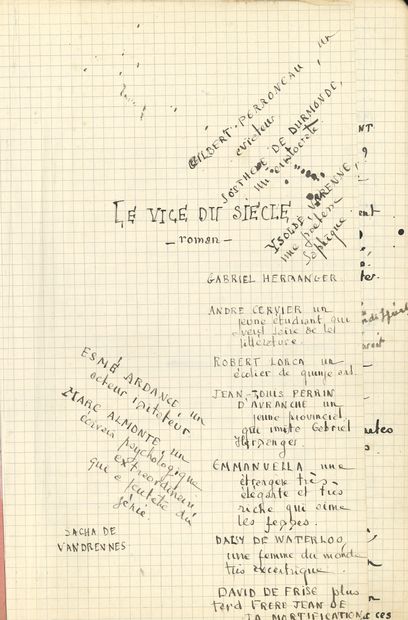 GILBERT PERRONEAU un
aviateur
SOSTHÈNE DE DURMONDE,
un aristocrate.
YSOLDE VARENNE,
une poétesse
saphique
LE VICE DU SIÈCLE
— roman —
GABRIEL HERSANGER
ANDRE CERVIER un
jeune étudiant qui
veut faire de la
littérature.
ROBERT LORCA un
écolier de quinze ans.
JEAN-LOUIS PERRIN
D'AVRANCHE un
jeune provincial
qui imite Gabriel
Hersanger.
ESMÉ ARDANCE, un
acteur imitateur
MARC ALMONTE, un
écrivain psychologique
extraordinaire
qui a peut-être du
génie.
EMMANUELLA une
étrangère très
élégante et très
riche qui aime
les femmes.
SACHA DE
VANDRENNES
DAISY DE WATERLOO,
une femme du monde
très excentrique.
DAVID DE FRISE plus
tard FRERE JEAN DE
LA MORTIFICATION
NT
ent
ter.
indifférent
utes
s ces